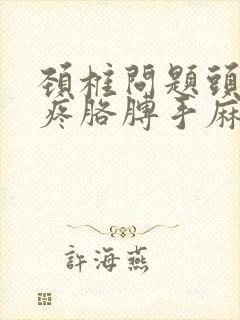 頚椎問題頭
疼胳膊手麻
許海燕